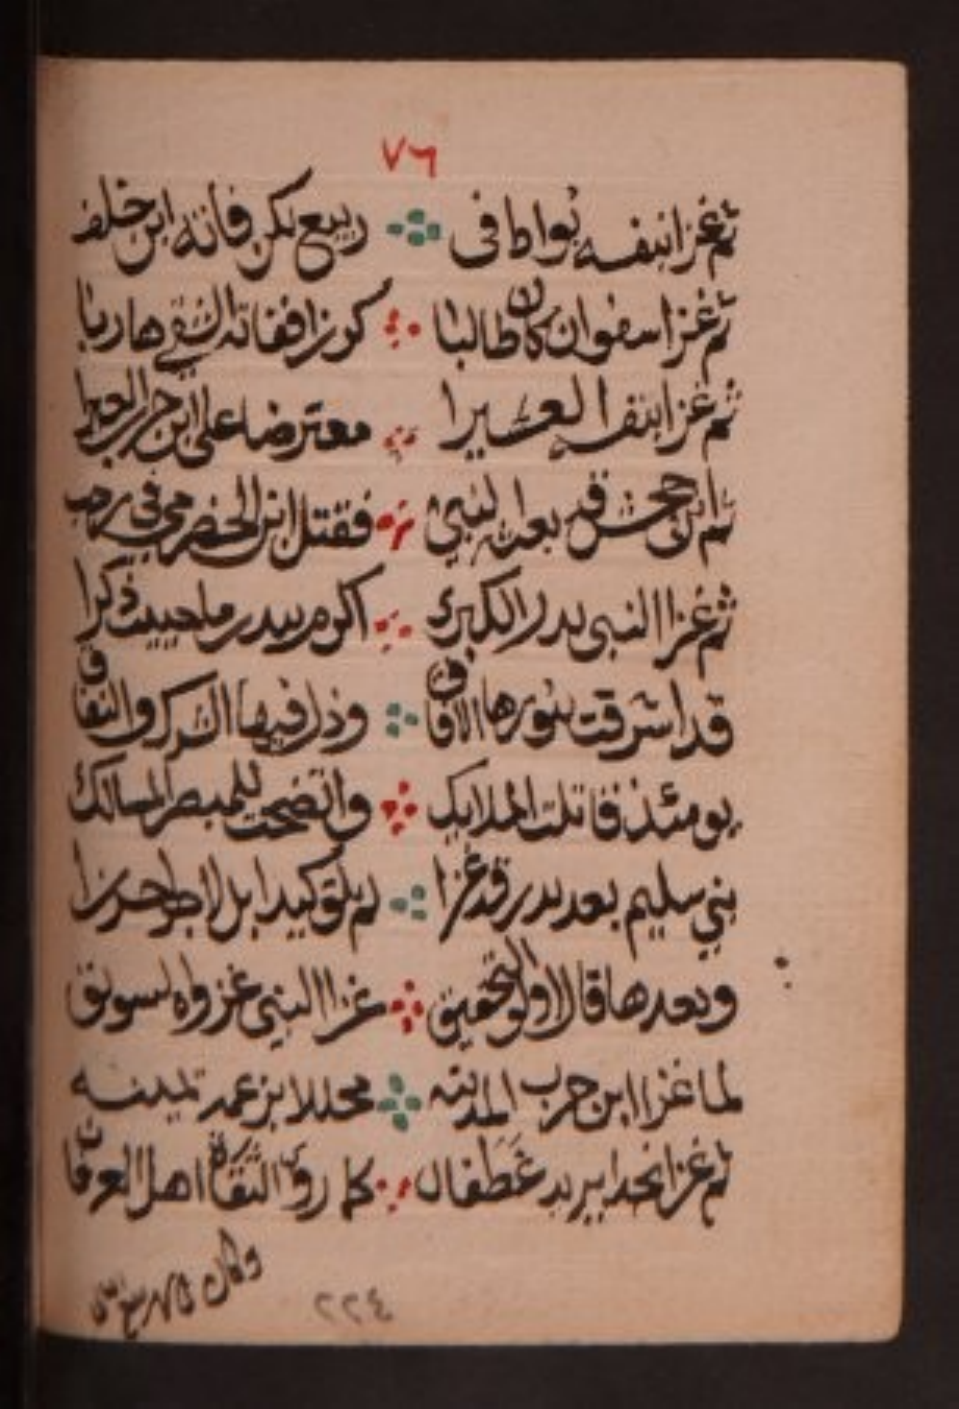 ٧٦
ثم غزا بنفسه بواطا فى ربيع بكر فاته ابن خلف
ثم غزا سفوان كان طالبا كرزا ففاته الشقي هاربا
ثم غزا بنفسه العسيرا معترضا على ابن حرب العيرا
ثم ابن جحش قد بعث النبي فقتل ابن الحضرمي في رجب
ثم غزا النبى بدر الكبرى اكرم ببدر ما حييت ذكرا
قد اشرقت بنورها الافاق وذل فيها الشرك والنفاق
يومئذ قاتلت الملايك واتضحت للمبصر المسالك
بني سليم بعد بدر قد غزا لم يلق كيدا بل لا
وبعدها قال اولو التحقيق غزا النبي غزواه لسويق
لما غزا ابن حرب المدينه مجللا بزعمه يمينه
ثم غزا نجدا يريد غطفان كما روى الثقاة اهل العرفان
وكان
٢٢٤